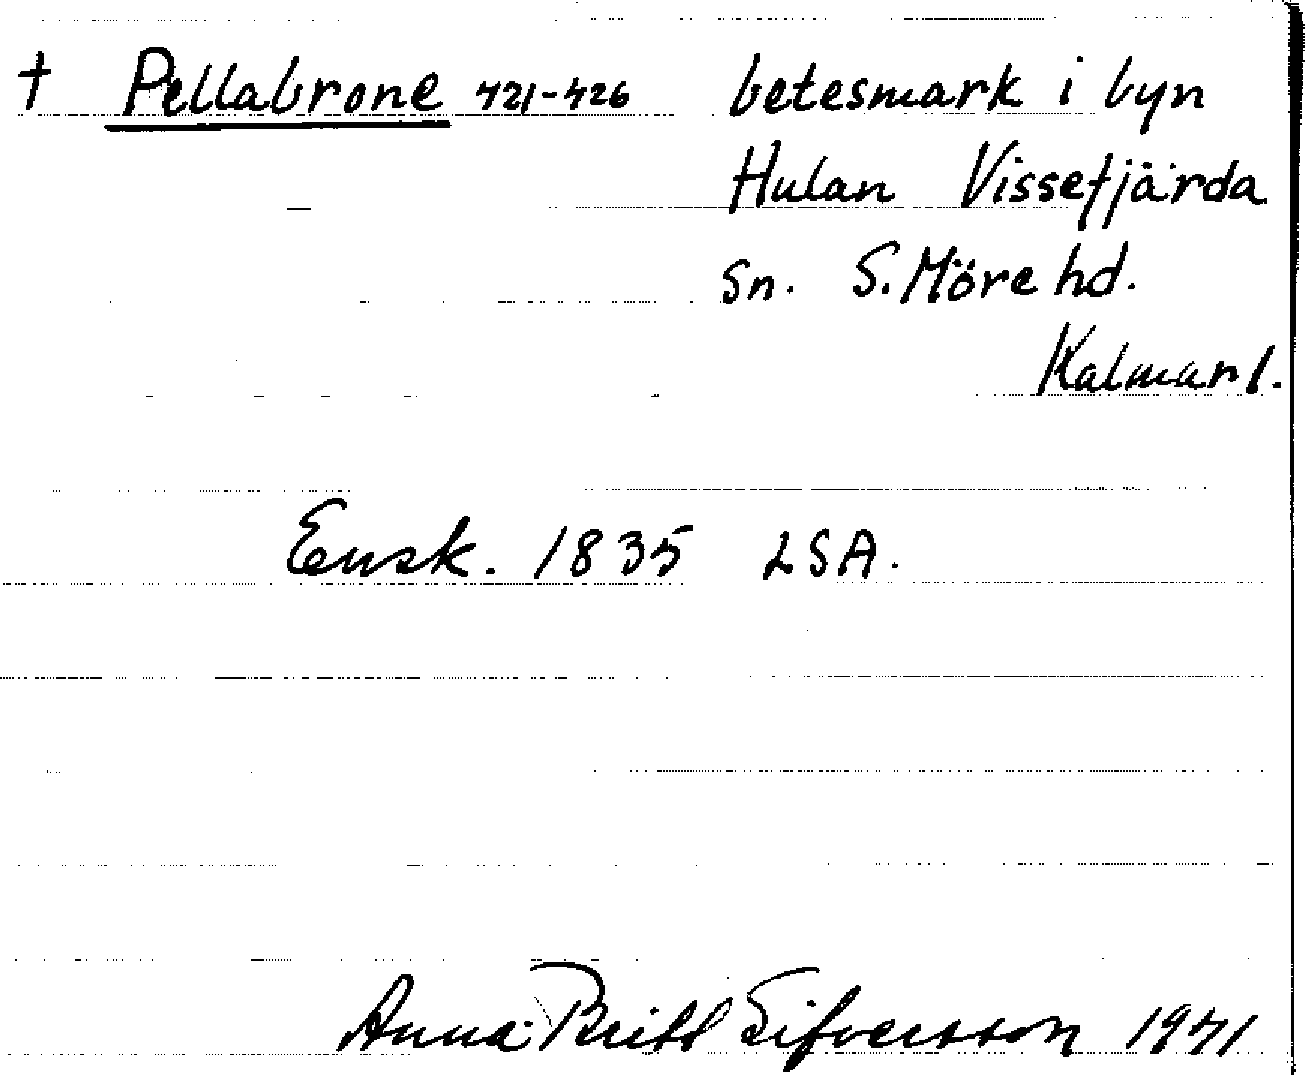 † Pellabrone 421-426 betesmark i byn
Hulan Vissefjärda
sn. S. Möre hd.
Kalmar l.
Ensk. 1835 LSA.
Anna-Britt Sifversson 1941